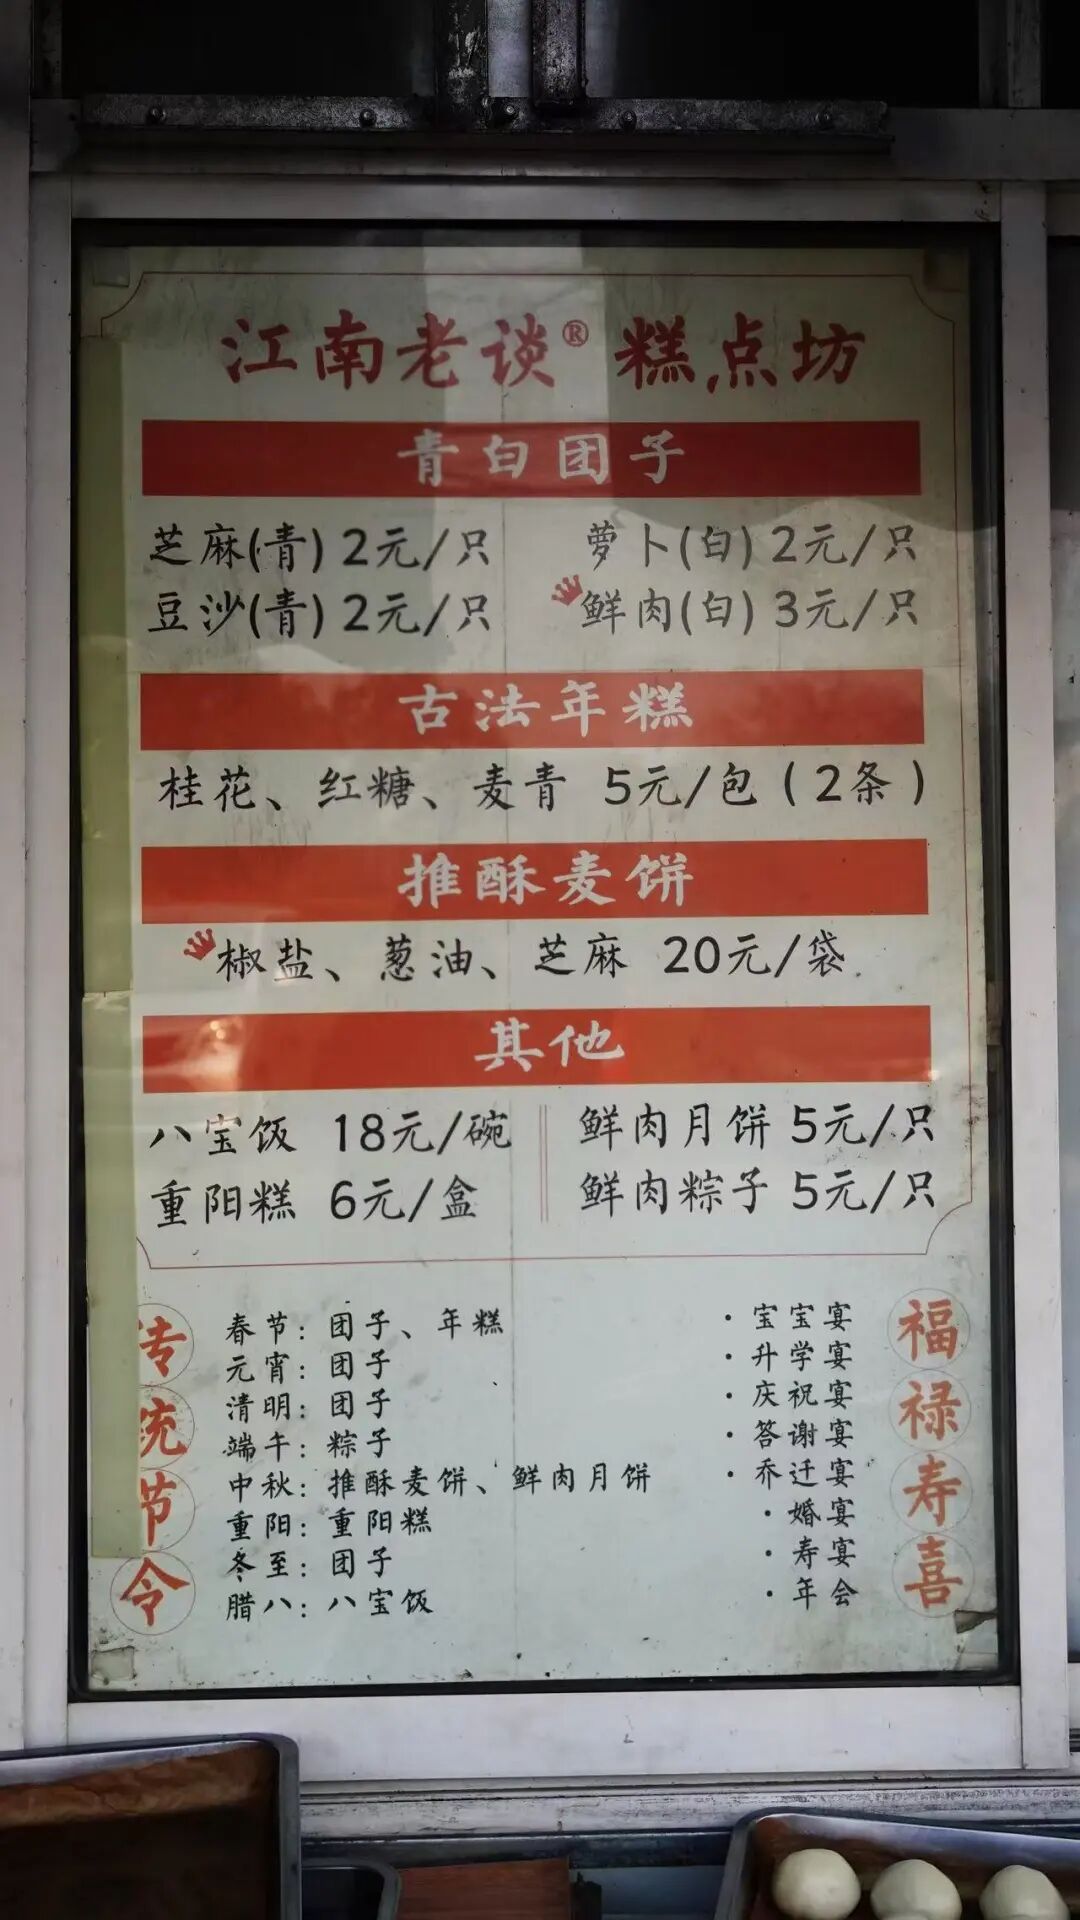 江南老谈® 糕点坊
青白团子
芝麻(青) 2元/只 萝卜(白) 2元/只
豆沙(青) 2元/只 鲜肉(白) 3元/只
古法年糕
桂花、红糖、麦青 5元/包（2条）
推酥麦饼
椒盐、葱油、芝麻 20元/袋
其他
八宝饭 18元/碗 鲜肉月饼 5元/只
重阳糕 6元/盒 鲜肉粽子 5元/只
传统节令
春节：团子、年糕
元宵：团子
清明：团子
端午：粽子
中秋：推酥麦饼、鲜肉月饼
重阳：重阳糕
冬至：团子
腊八：八宝饭
·宝宝宴
·升学宴
·庆祝宴
·答谢宴
·乔迁宴
·婚宴
·寿宴
·年会
福禄寿喜